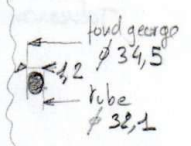 fond gorge
ø 34,5
1,2
tube
ø 32,1